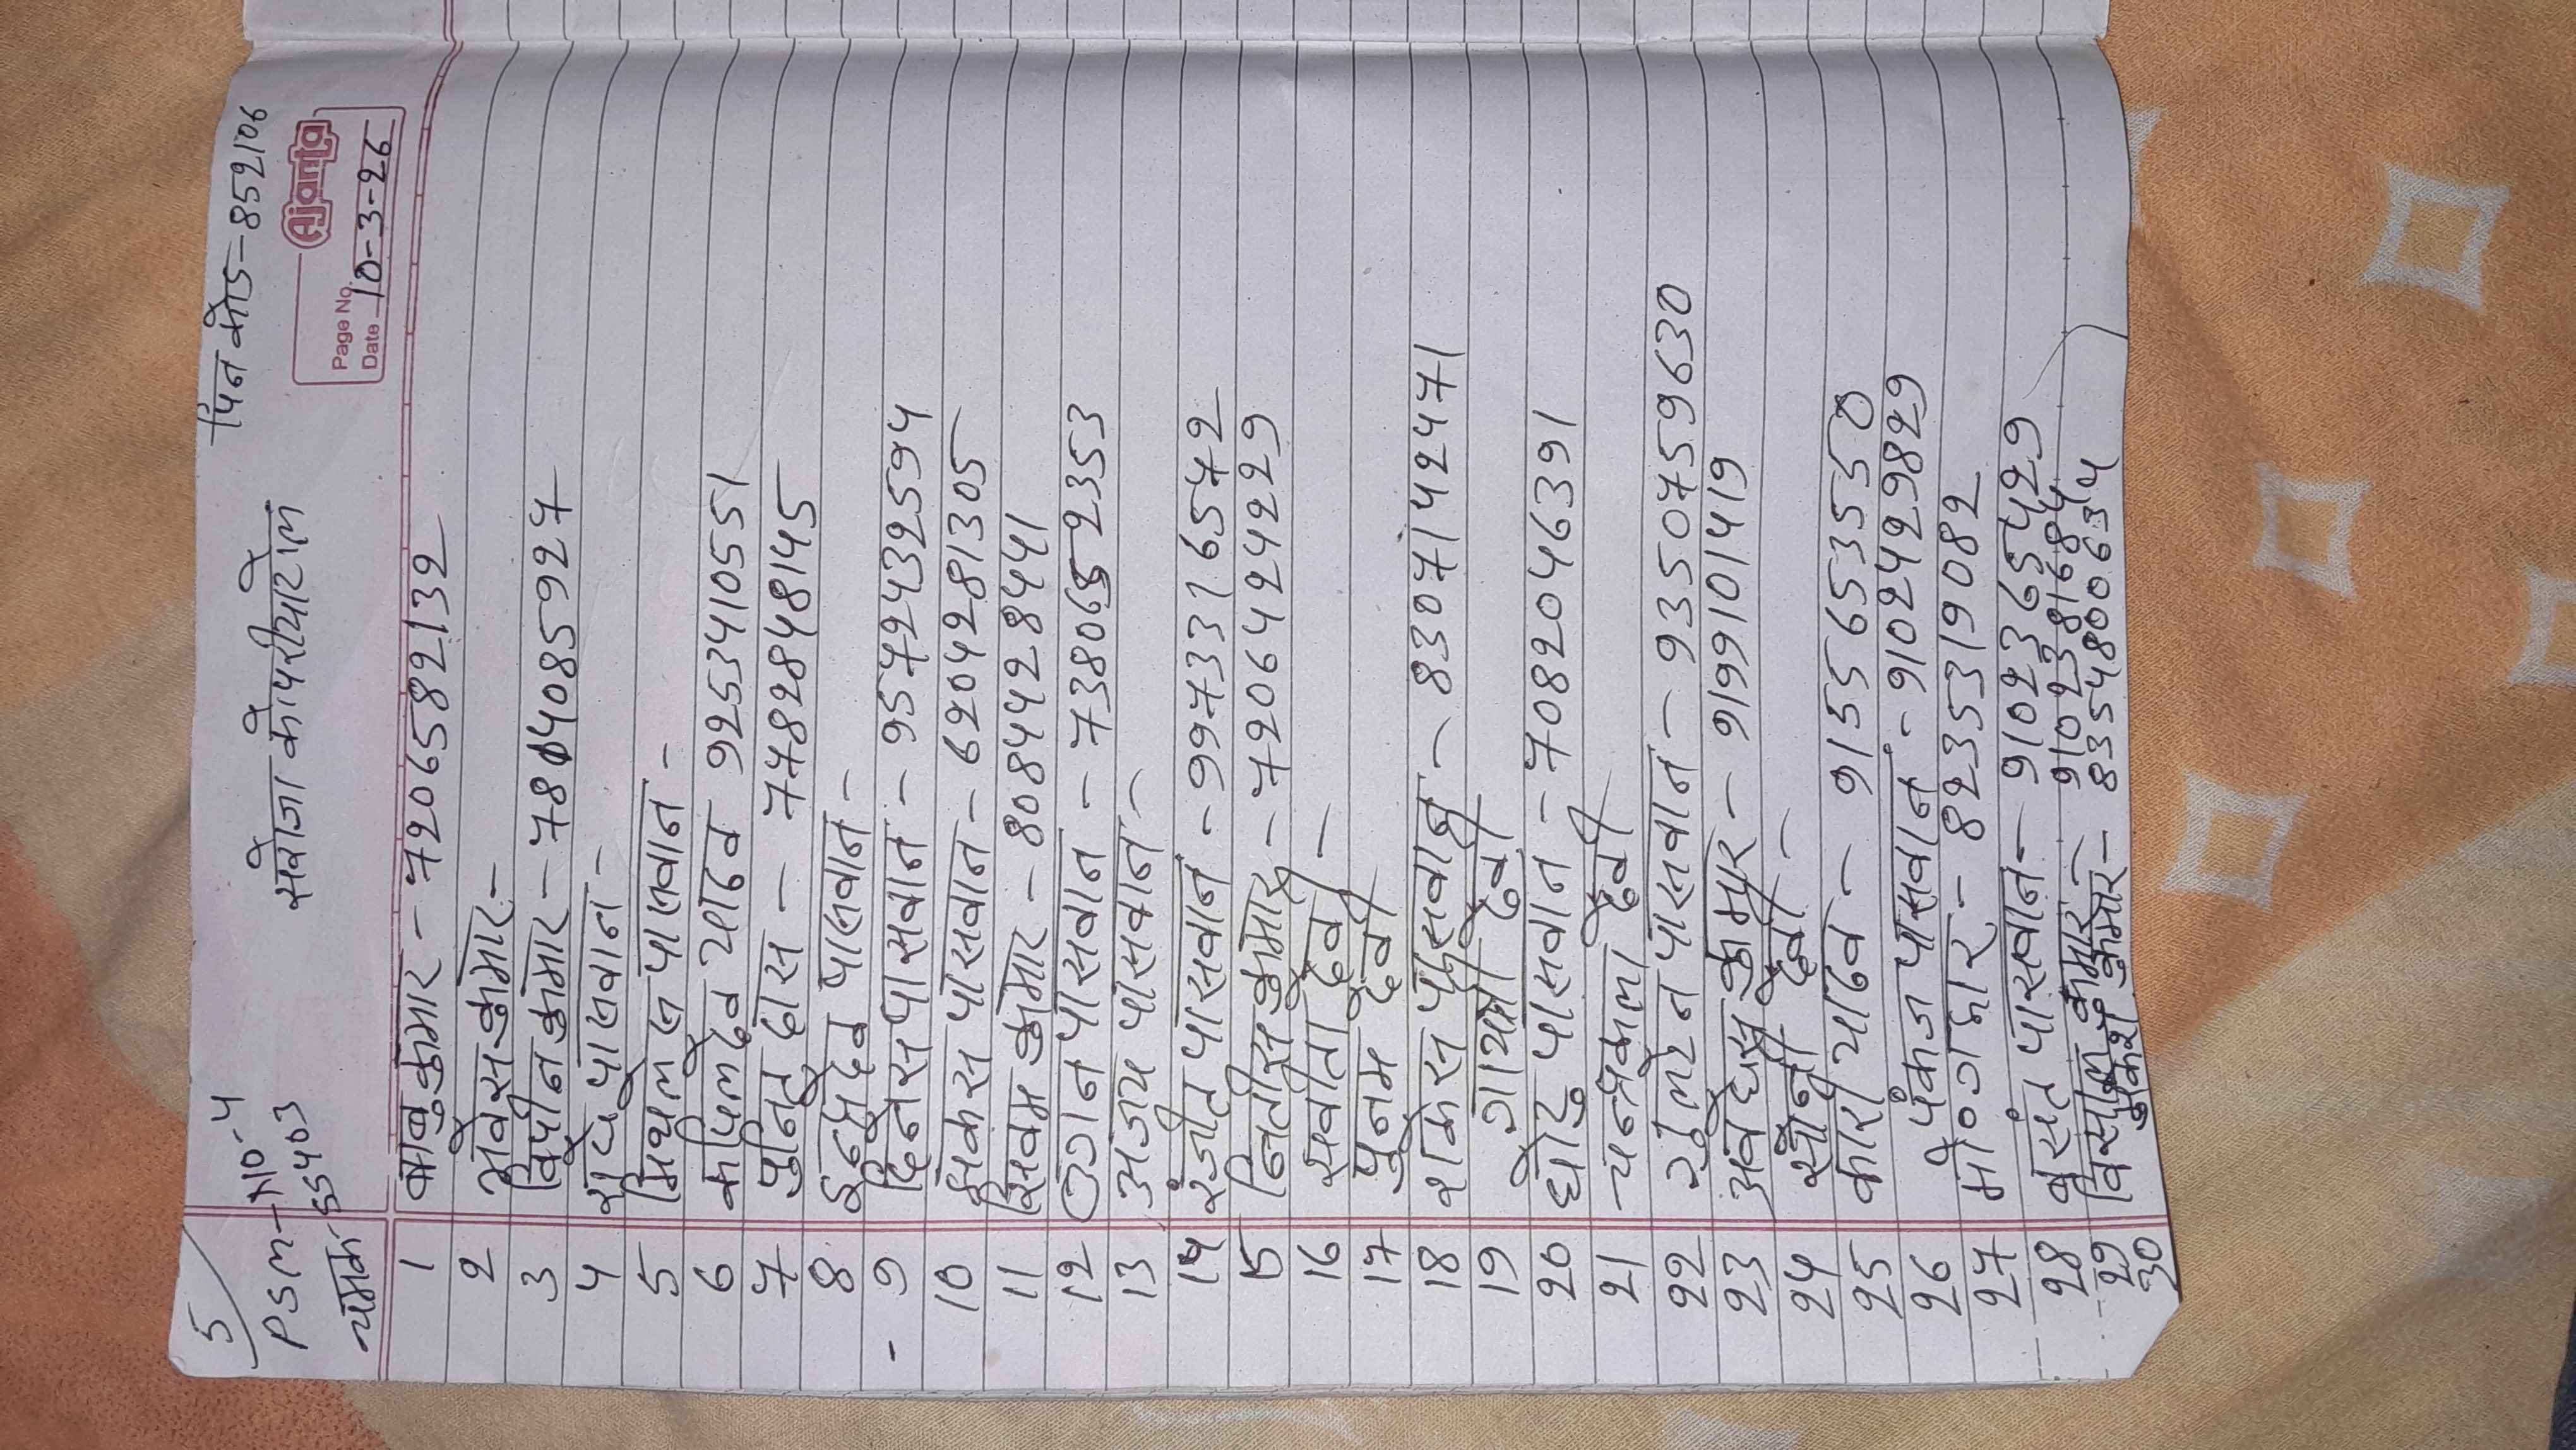 5
PSM-NO-4 पिन कोड-852106
55403
Ajanta
Page No.
Date 10-3-26
1 बाबु कुमार - 7206582132
2 भिवेस कुमार-
3 विपीन कुमार - 7814085927
4 पासवान -
5 मिथलेस पासवान -
6 कपिलदेव यादव 9253410551
7 पुनित दास - 7782848145
8 इन्द्रदेव पासवान -
9 दिनेस पासवान - 9572432594
10 विकास पासवान - 6204281305
11 सिवम कुमार - 8084428441
12 पासवान - 7380652353
13 अजय पासवान -
14 रंजीत पासवान - 9973316572
15 नितीस कुमार - 7206424229
16 सवीता देवी -
17 पुनम देवी
18 राकेस पासवान - 8307142471
19 गायत्री देवी
20 छोटु पासवान - 7082046391
21 चन्द्रकला देवी
22 पासवान - 9350759630
23 अवधेस कुमार - 9199101419
24 देवी -
25 कारी यादव - 9155653550
26 पंकज पासवान - 9102429829
27 8235319082
28 बसंत पासवान - 9102365429
29 विसाल कुमार - 9102381684
30 मुकेश कुमार - 8354800634